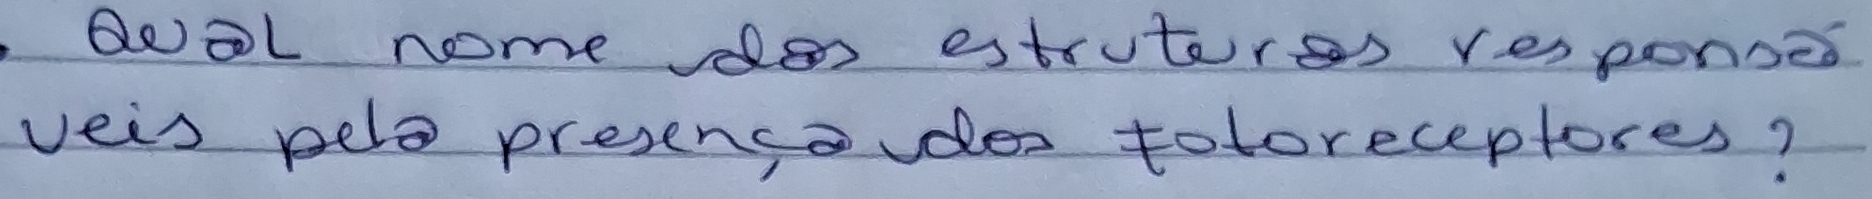 . Qual nome das estruturas responsá
veis pela presença dos fotoreceptores?